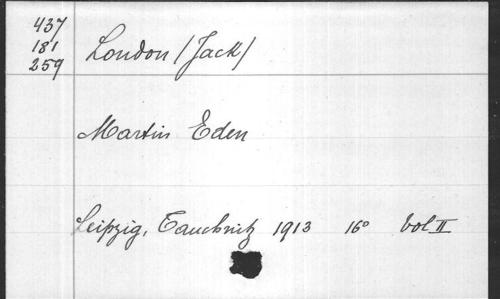 437
181
259
London (Jack)
Martin Eden
Leipzig, Tauchnitz 1913 16° Vol II